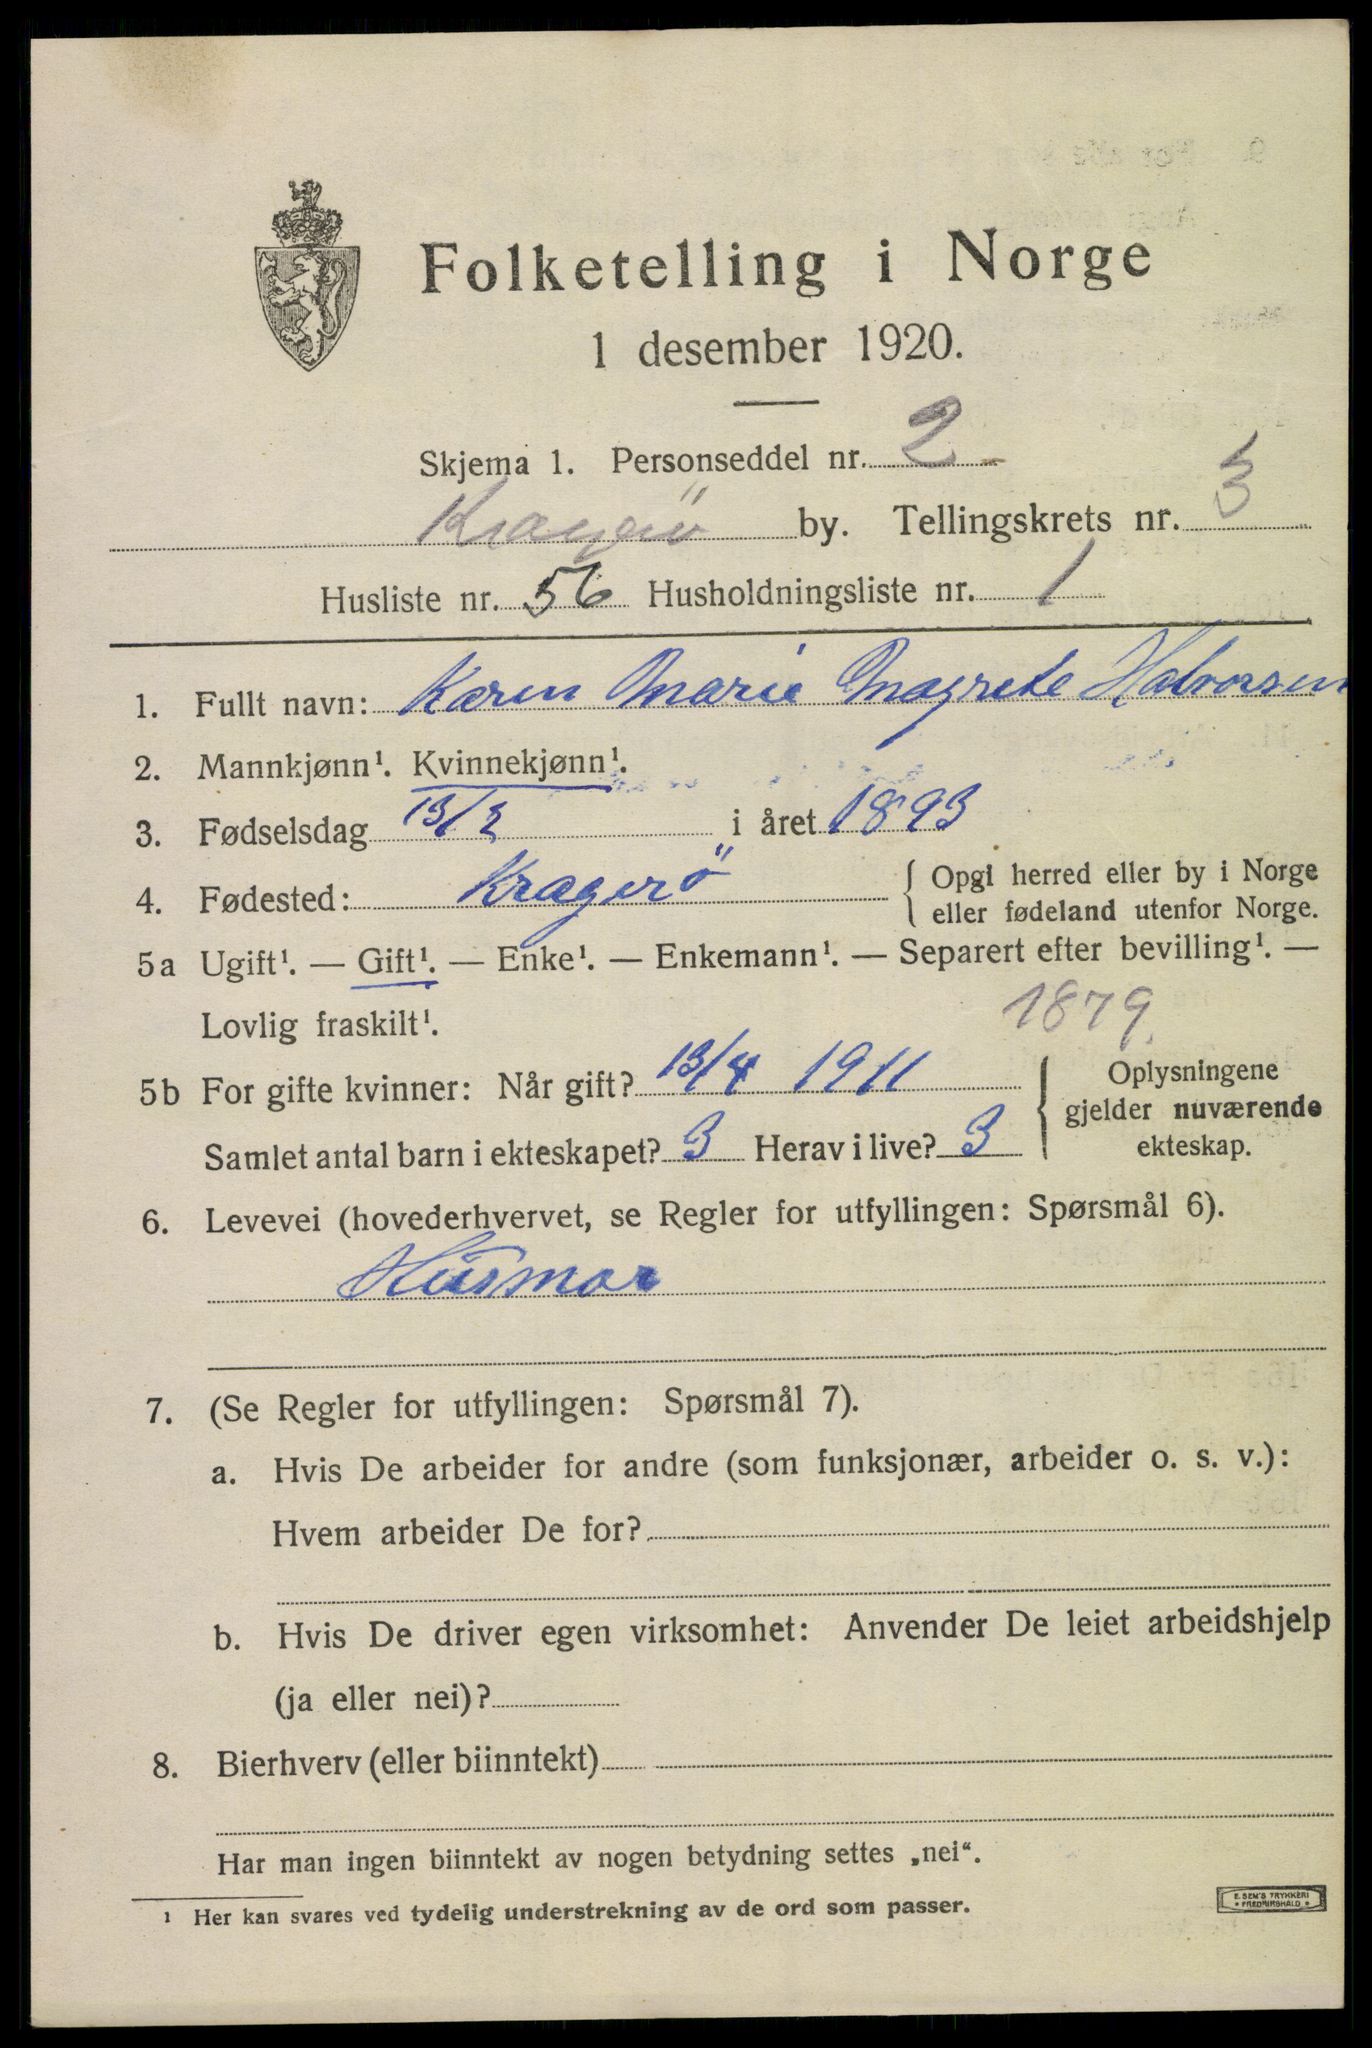 Folketelling i Norge
1 desember 1920.
Skjema 1. Personseddel nr. 2
Kragerø by. Tellingskrets nr. 3
Husliste nr. 56 Husholdningsliste nr. 1
1. Fullt navn: Karen Marie Magrete Halvorsen
2. Mannkjønn¹. Kvinnekjønn¹.
3. Fødselsdag 13/2 i året 1893
4. Fødested: Kragerø { Opgi herred eller by i Norge
eller fødeland utenfor Norge.
5a Ugift¹. — Gift¹. — Enke¹. — Enkemann¹. — Separert efter bevilling¹. —
Lovlig fraskilt¹. 1879
5b For gifte kvinner: Når gift? 13/4 1911 { Oplysningene
gjelder nuværende
Samlet antal barn i ekteskapet? 3 Herav i live? 3 ekteskap.
6. Levevei (hovederhvervet, se Regler for utfyllingen: Spørsmål 6).
Husmor
7. (Se Regler for utfyllingen: Spørsmål 7).
a. Hvis De arbeider for andre (som funksjonær, arbeider o. s. v.):
Hvem arbeider De for?
b. Hvis De driver egen virksomhet: Anvender De leiet arbeidshjelp
(ja eller nei)?
8. Bierhverv (eller biinntekt)
Har man ingen biinntekt av nogen betydning settes „nei“.
¹ Her kan svares ved tydelig understrekning av de ord som passer.
E. SEM'S TRYKKERI
FREDRIKSHALD